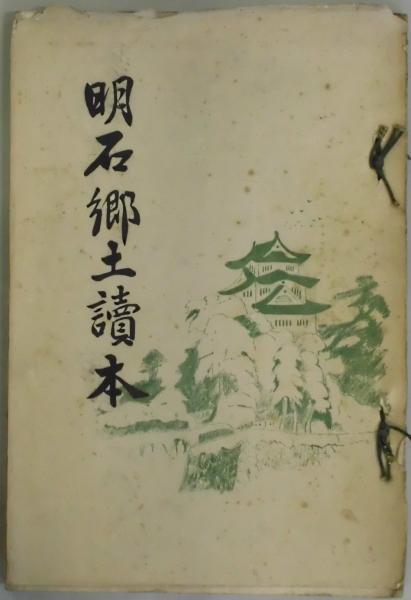 明石郷土讀本